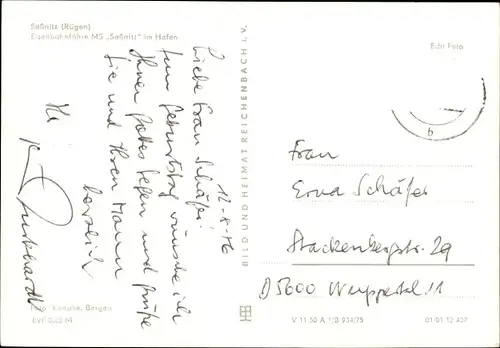 Saßnitz (Rügen)
Eisenbahnfähre MS „Saßnitz" im Hafen
12-8-76
Liebe Frau Schäfer!
Zum Geburtstag wünsche ich
Ihnen Gottes Segen und grüße
Sie und Ihren Mann
herzlich
Ihr
BILD UND HEIMAT REICHENBACH i. V.
Echt Foto
b
Frau
Erna Schäfer
Stackenbergstr. 29
D 5600 Wuppertal 11
Bergen
V 11 50 A 1/B 934/75
01 01 12 407